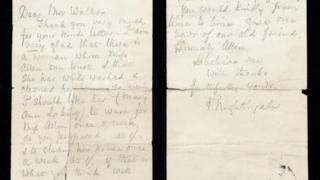 Dear Mrs Walker
Thank you very much
for your kind letter. I am
very glad that there is
a woman whom Miss
can trust, & that
she has white washed &
I should like her (Mary
Ann) to work for
Miss once a week,
as you proposed, at
& to clean her house once
a week at if that is
what you think
you would kindly from
time to time give me
news of our old friend,
Hannah Allen.
Believe me
with thanks
yours
F. Nightingale